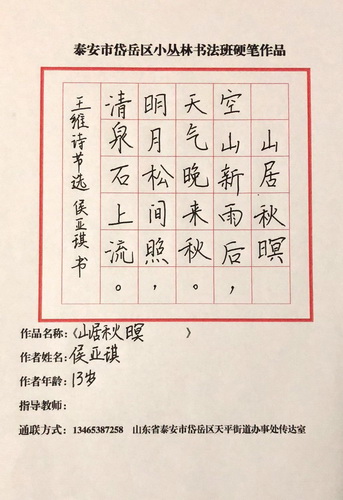 泰安市岱岳区小丛林书法班硬笔作品
山居秋暝
空山新雨后，
天气晚来秋。
明月松间照，
清泉石上流。
王维诗节选 侯亚琪 书
作品名称：《山居秋暝 》
作者姓名：侯亚琪
作者年龄：13岁
指导教师：
通联方式： 13465387258 山东省泰安市岱岳区天平街道办事处传达室